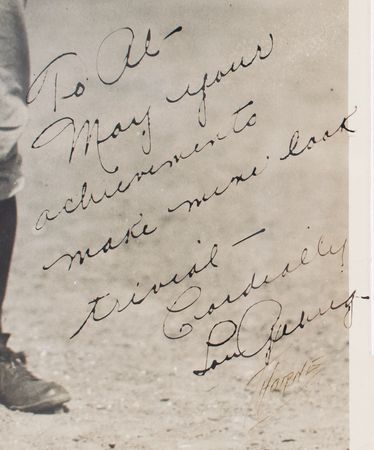 To Al—
May your
achievements
make mine look
trivial—
Cordially
Lou Gehrig
THORNE